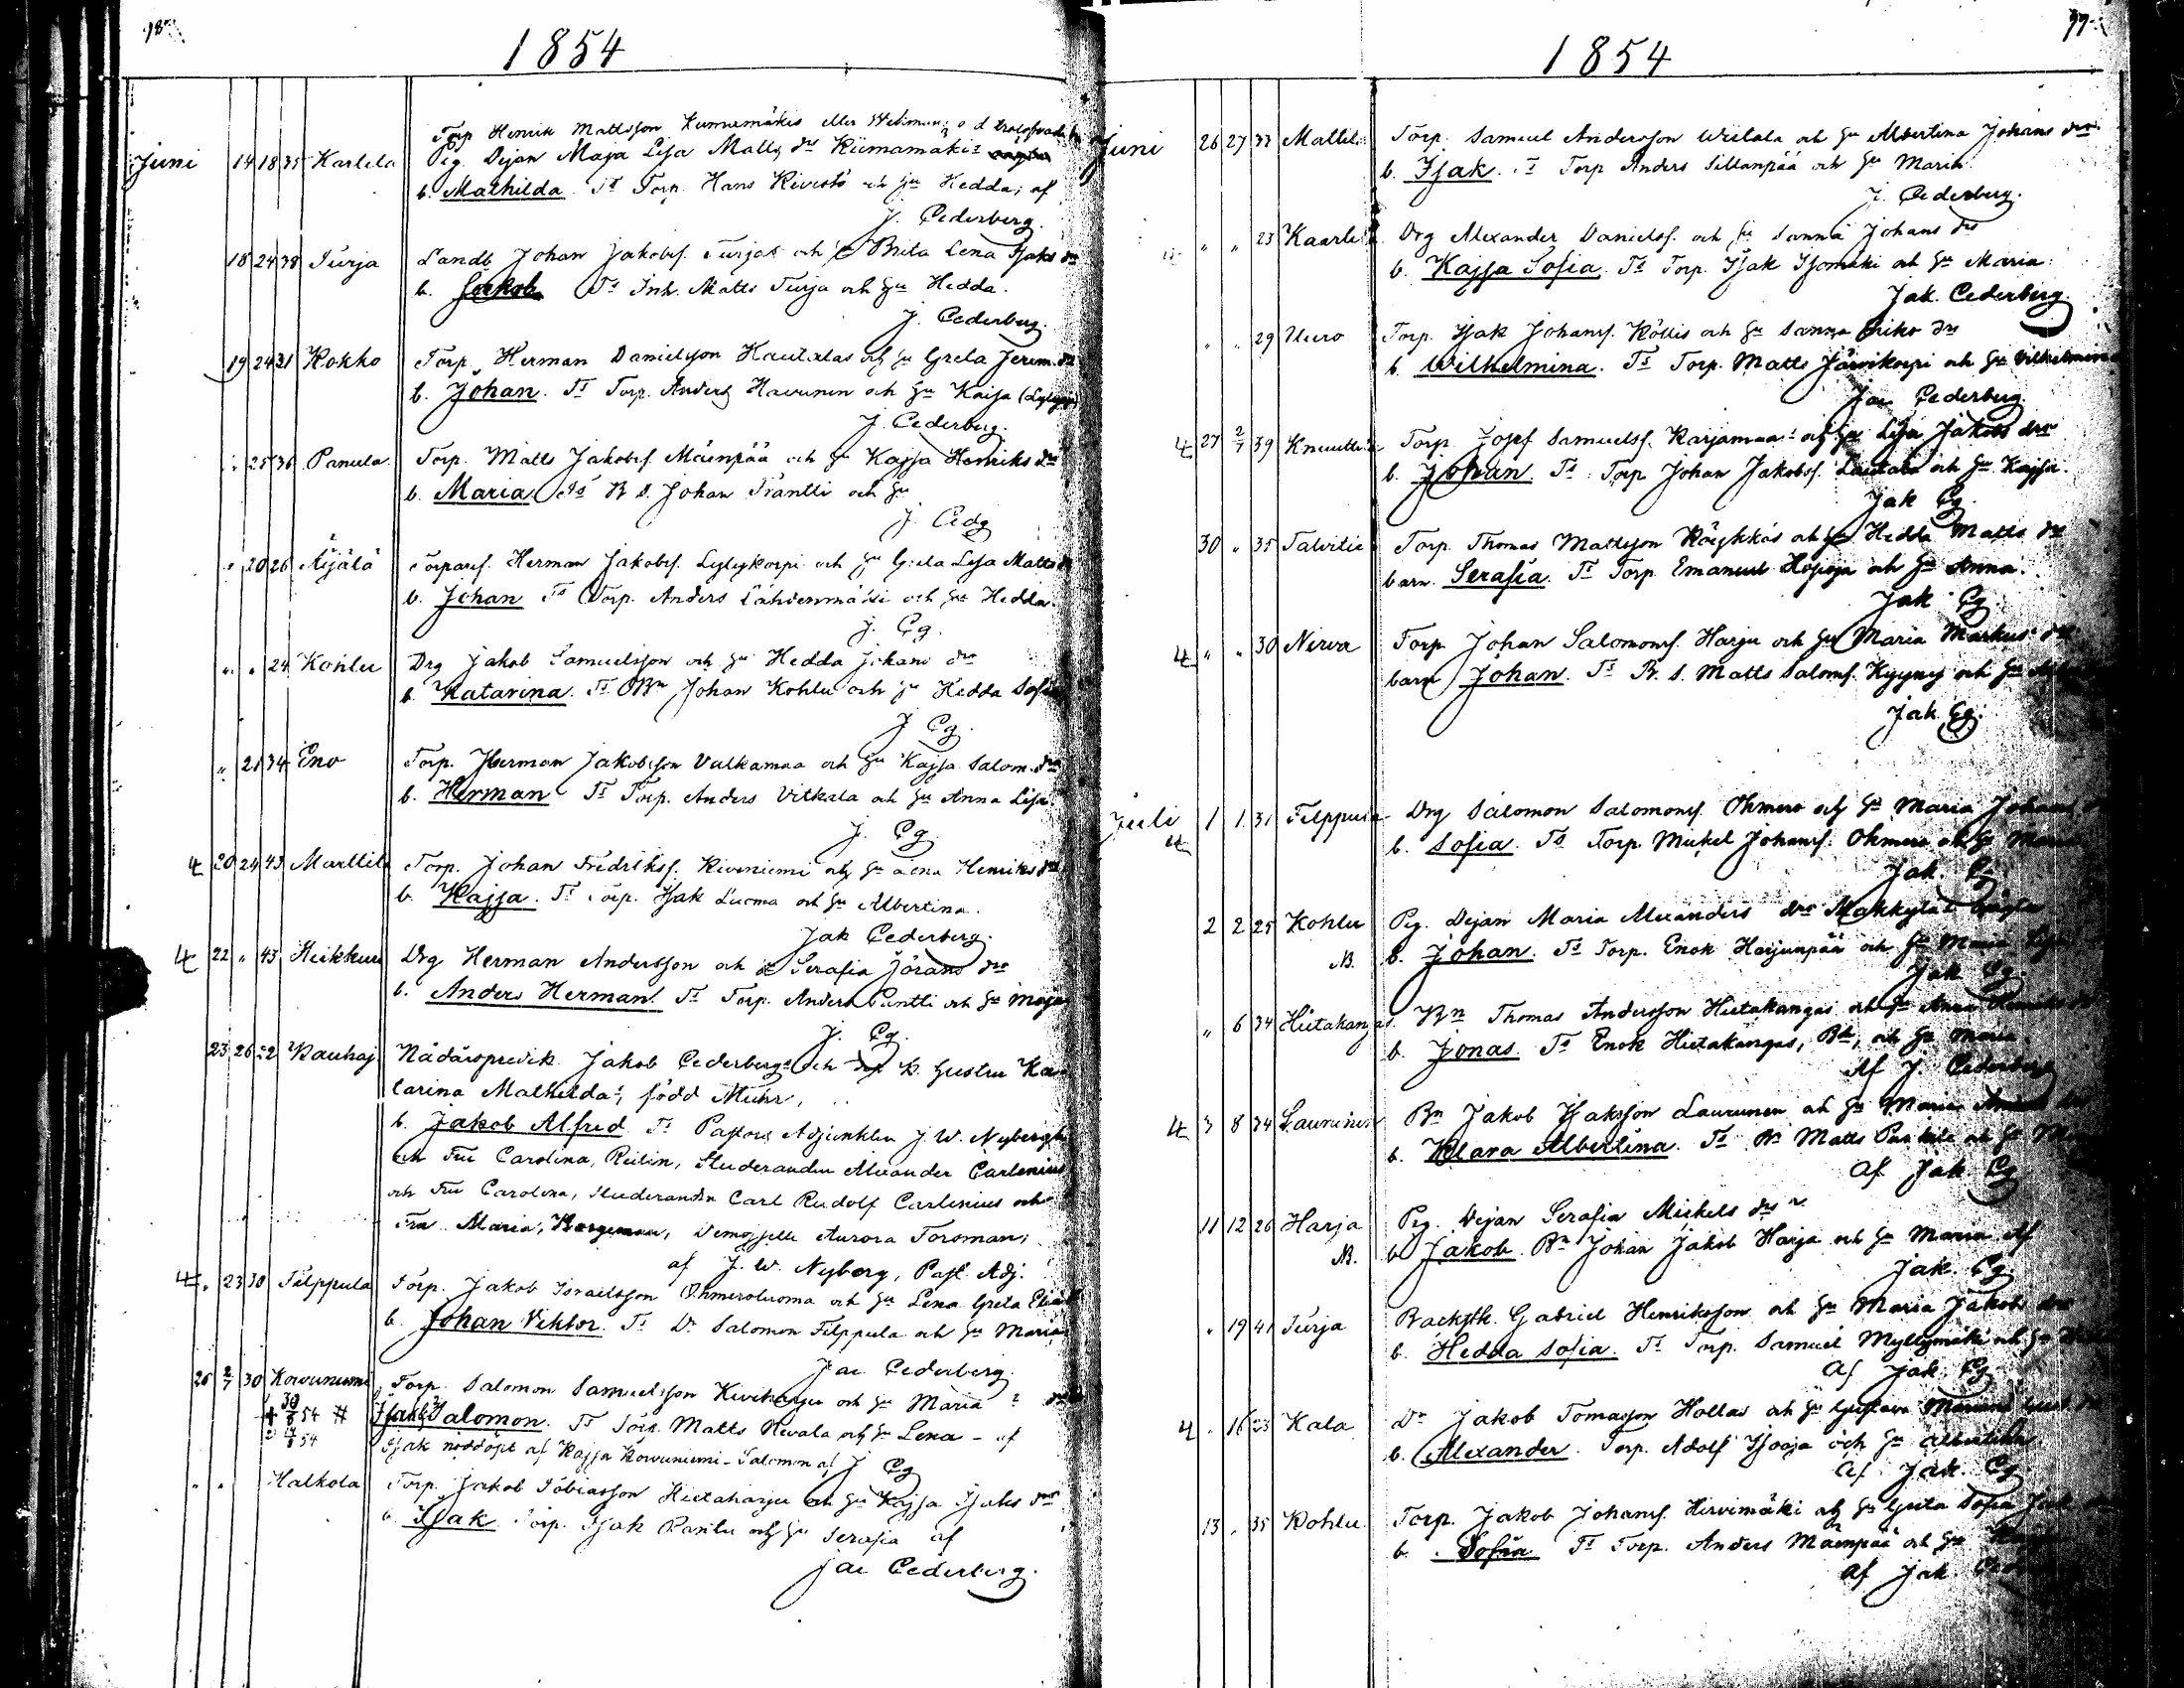 98
1854
Torp Henrik Mattsson Kunnemäkis eller
Juni 14 18 35 Karlela Pig. Dejan Maja Lisa Matts drs Kiimamäki
b. Mathilda. Ts Torp. Hans Kivistö och hu Hedda; af
J. Cederberg.
18 24 38 Turja Landb Johan Jakobsf. Turjas och Brita Lena Isaks dr
b. Jakob Ts Inh. Matts Turja och hu Hedda.
J. Cederberg.
19 24 31 Kokko Torp. Herman Danielsson Kautalas och hu Greta Jerem. dr
b. Johan. Ts Torp. Anders Havunen och hu Kaisa
J. Cederberg.
" 25 36 Panula Torp. Matts Jakobsf. Mäenpää och hu Kajsa Henriks dr
b. Maria Ts B. s. Johan Träntti och hu
J. Cedg
" 20 26 Äijälä Torparesf. Herman Jakobsf. Lylykorpi och hu Greta Lisa Matts dr
b. Johan Ts Torp. Anders Lähdenmäki och hu Hedda.
J. Cg.
" " 24 Kohlu Drg Jakob Samuelsson och hu Hedda Johans dr
b. Katarina. Ts Bn Johan Kohlu och hu Hedda Sofia
J Cg.
" 21 34 Eno Torp. Herman Jakobsson Valkamaa och hu Kajsa Salom. dr
b. Herman Ts Torp. Anders Vitkala och hu Anna Lisa.
J. Cg.
20 24 43 Marttila Torp. Johan Fredriksf. Kiviniemi och hu Lena Henriks dr
b. Kajsa. Ts Torp. Isak Luoma och hu Albertina.
Jak Cederberg.
22 " 43 Heikkuri Drg Herman Andersson och Serafia Jörans dr
b. Anders Herman. Ts Torp. Anders Puntti och hu Maja
J. Cg.
23 26 22 Kauhaj Nådårspredik. Jakob Cederbergs och K. hustru Ka-
tarina Mathilda, född Muhr,
b. Jakob Alfred Ts Pastors Adjunkten J. W. Nyberg
och Fru Carolina, Reilin, Studeranden Alexander Carlenius
och Fru Carolina, Studeranden Carl Rudolf Carlenius och
Fru Maria, Bergman, Demoiselle Aurora Forsman;
af J. W. Nyberg, Past. Adj.
" 23 30 Filppula Torp. Jakob Israelsson Ohmeroluoma och hu Lena Greta
b. Johan Viktor. Ts Dr Salomon Filppula och hu Maria
Jac Cederberg.
26 2/7 30 Korvuniemi Torp. Salomon Samuelsson Kiviharju och hu Maria ? dr
54 # Isak Salomon. Ts Torp. Matts Nevala och hu Lena - af
54 Isak nöddöpt af Kajsa Korvuniemi - Salomon af J Cg
" " Halkola Torp. Jakob Tobiasson Hietaharju och hu Kajsa Isaks dr
b. Isak Torp. Isak Panttu och hu Serafia af
Jac Cederberg.
99
1854
Juni 26 27 33 Mattila Torp. Samuel Andersson Wiitala och hu Albertina Johans dr
b. Isak. Ts Torp Anders Sillanpää och hu Maria
J. Cederberg.
" " 23 Kaarlela Drg Alexander Danielsf. och hu Sanna Johans dr
b. Kajsa Sofia. Ts Torp. Isak Isomäki och hu Maria.
Jak. Cederberg.
" " 29 Uuro Torp. Isak Johansf. Köllis och hu Sanna Eriks dr
b. Wilhelmina. Ts Torp. Matts Järvikorpi och hu Vilhelmina
Jac Cederberg.
27 2/7 39 Knuuttila Torp. Josef Samuelsf. Karjamaas och hu Lisa Jakobs dr
b. Johan. Ts Torp Johan Jakobsf. Lautala och hu Kajsa.
Jak Cg.
30 " 35 Talvitie Torp. Thomas Mattsson Röyhkös och hu Hedda Matts dr
barn. Serafia. Ts Torp Emanuel Hosioja och hu Anna.
Jak Cg
" " 30 Nirva Torp Johan Salomonsf. Harju och hu Maria Markus dr
barn Johan. Ts B. s. Matts Salomf. Kyyny och hu
Jak. Cg.
Juli 1 1 31 Filppula Drg Salomon Salomonsf. Ohmero och hu Maria Johans
b. Sofia. Ts Torp. Mickel Johansf. Ohmero och hu Maria
Jak. Cg
2 2 25 Kohlu Pig. Dejan Maria Alexanders drs Makkylä
B. b. Johan. Ts Torp. Enok Harjunpää och hu Maria
Jak Cg.
" 6 34 Hietakangas. Bn Thomas Andersson Hietakangas och hu Anna
b. Jonas. Ts Enok Hietakangas, Bn, och hu Maria
Af J. Cederberg
3 8 34 Laurunen Bn Jakob Isaksson Laurunen och hu Maria
b. Klara Albertina. Ts Bn Matts Pankila och hu
af Jak Cg
11 12 26 Harja Pig. Dejan Serafia Mickels drs
B. b Jakob. Bn Johan Jakob Harja och hu Maria af
Jak. Cg.
" 19 41 Turja Backsth. Gabriel Henriksson och hu Maria Jakobs dr
b. Hedda Sofia. Ts Torp. Samuel Myllymäki och hu
Af Jak. Cg
" 16 23 Kala Dr Jakob Tomasson Hollas och hu Gustava
b. Alexander. Torp. Adolf Isooja och hu Albertina
Af Jak. Cg
13 " 35 Kohlu. Torp. Jakob Johansf. Hirvimäki och hu Greta Sofia
b. Sofia Ts Torp. Anders Mäenpää och hu
af Jak.